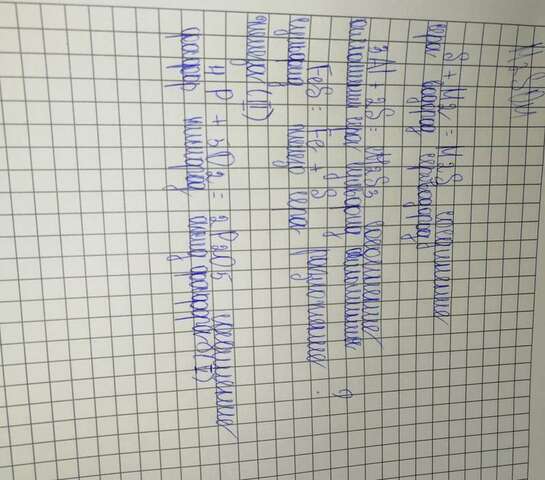 S + H2 = H2S соединение
сера водород сероводород
2Al + 3S = Al2S3 соединение
алюминий сера сульфид алюминия
FeS = Fe + S разложение
сульфид железо сера
железа (II)
4P + 5O2 = 2P2O5 соединение
фосфор кислород оксид фосфора (V)